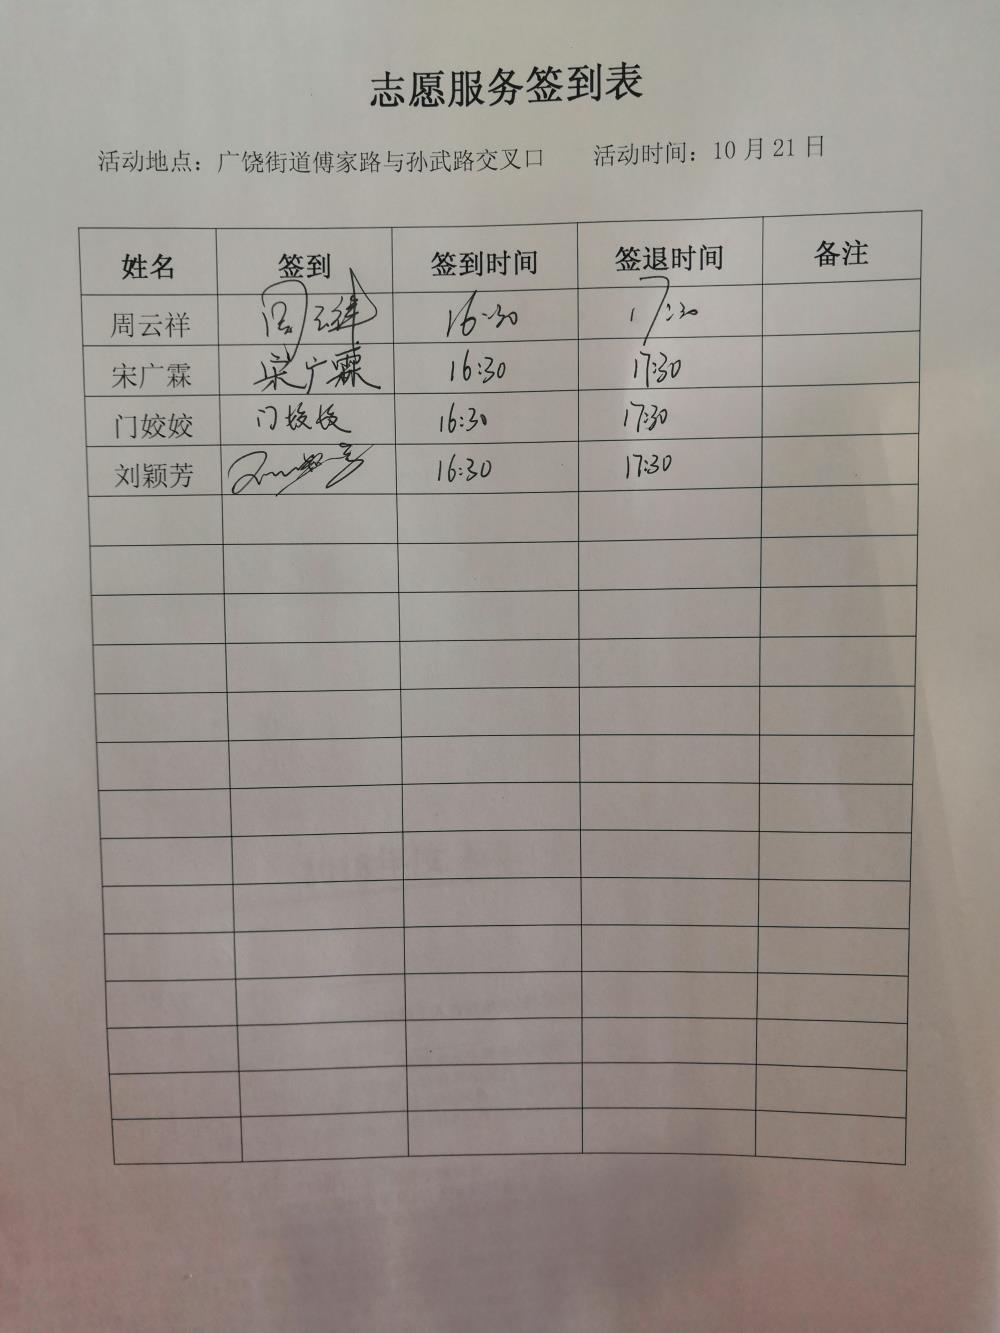 志愿服务签到表
活动地点：广饶街道傅家路与孙武路交叉口 活动时间：10月21日
姓名 签到 签到时间 签退时间 备注
周云祥 周云祥 16:30 17:30
宋广霖 宋广霖 16:30 17:30
门姣姣 门姣姣 16:30 17:30
刘颖芳 16:30 17:30